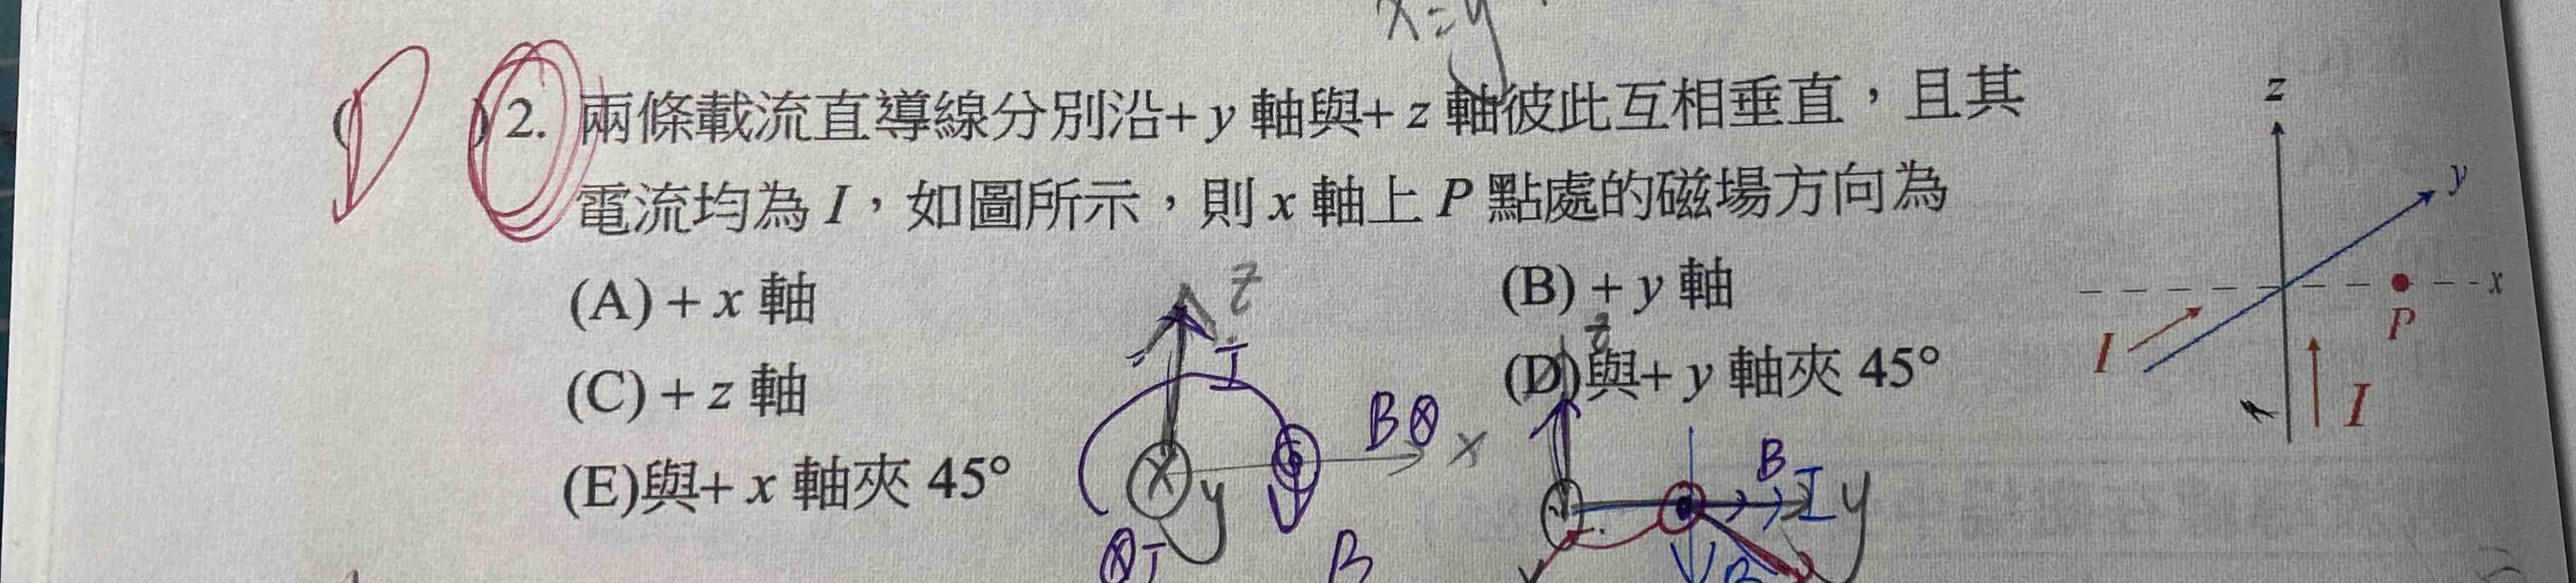 x=y
( )2. 兩條載流直導線分別沿+ y 軸與+ z 軸彼此互相垂直，且其
電流均為 I，如圖所示，則 x 軸上 P 點處的磁場方向為
(A) + x 軸
(B) + y 軸
(C) + z 軸
(D)與+ y 軸夾 45°
(E)與+ x 軸夾 45°
z
y
x
P
I
I
z
I
B⊗
x
y
⊗I
B
z
B
I y
B